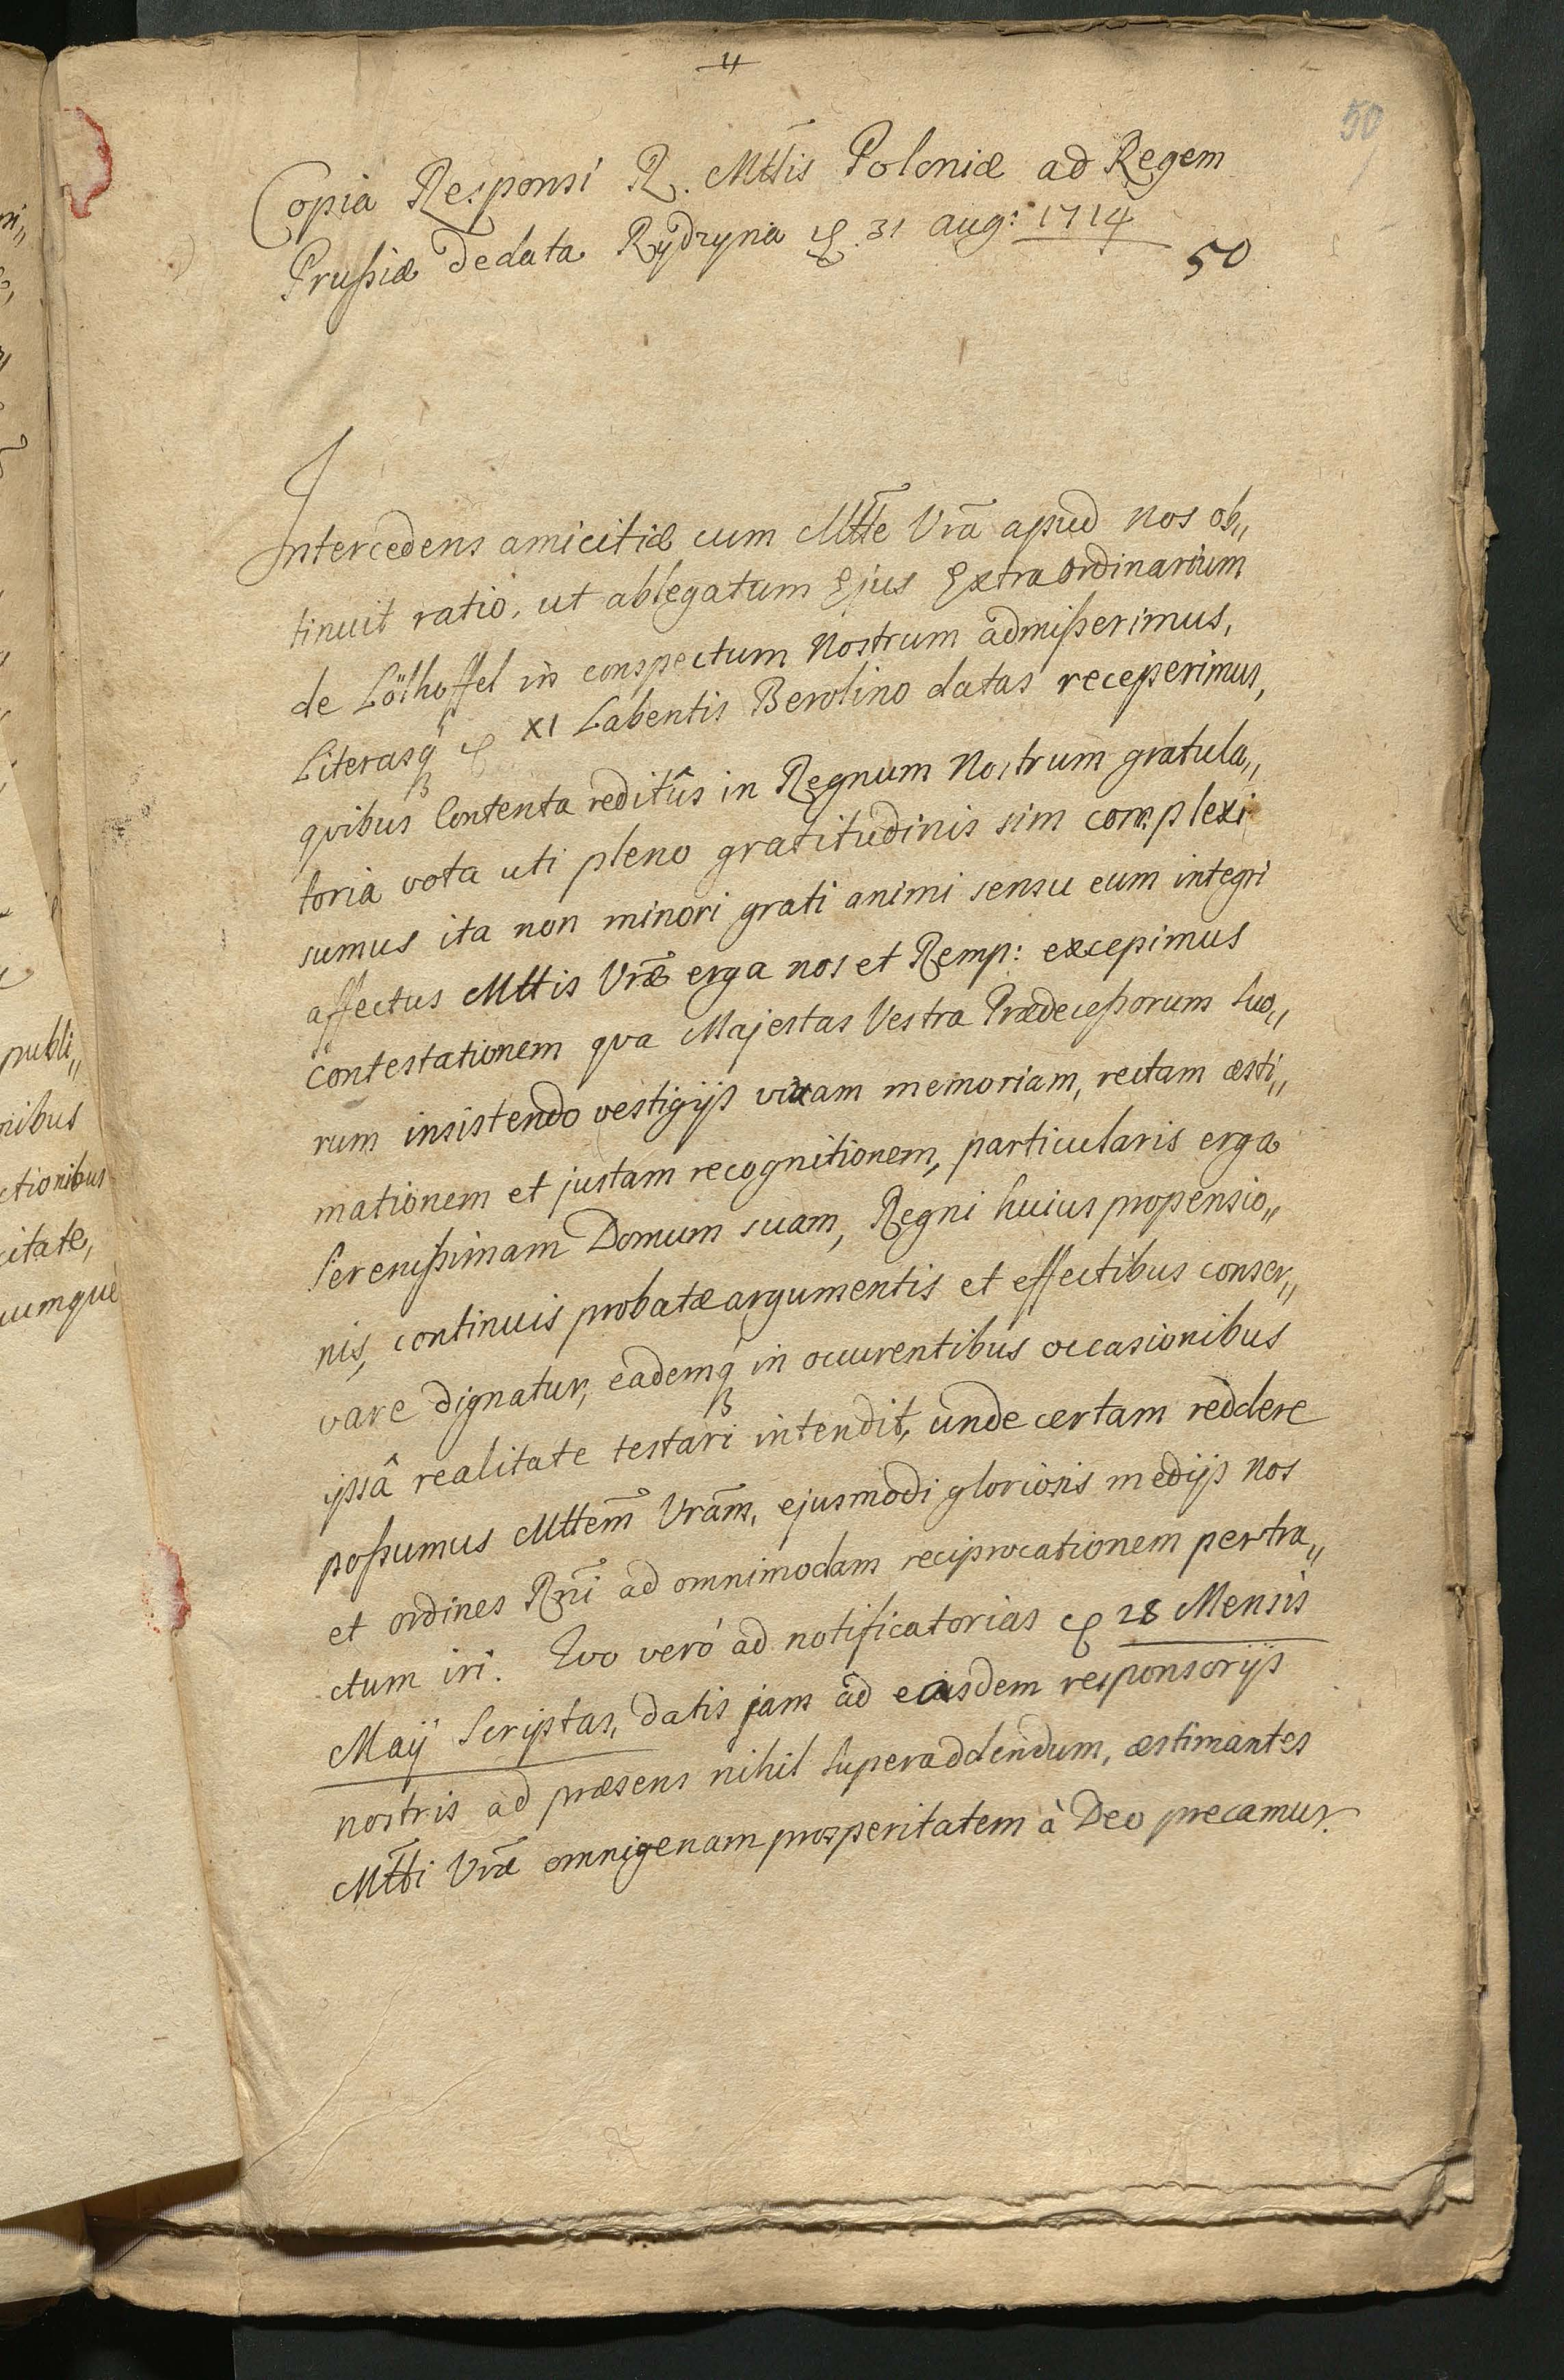 4
50
Copia Responsi R. Mttis Poloniæ ad Regem
Prussiæ de data Rydzyna d. 31 aug: 1714
50
Intercedens amicitiæ cum Mtte Vrã apud nos ob„
tinuit ratio, ut ablegatum Ejus Extraordinarium
de Lölhoffel in conspectum Nostrum admisserimus,
Literasq d XI Labentis Berolino datas receperimus,
quibus Contenta reditûs in Regnum Nostrum gratula„
toria vota uti pleno gratitudinis sim complexi
sumus ita non minori grati animi sensu eum integri
affectus Mttis Vræ erga nos et Remp: excepimus
contestationem qva Majestas Vestra Prædecessorum suo„
rum insistendo vestigijs vivam memoriam, rectam æsti„
mationem et justam recognitionem, particularis erga
Serenissimam Domum suam, Regni huius propensio„
nis, continuis probatæ argumentis et effectibus conser„
vare dignatur, eademq in occurentibus occasionibus
ipsâ realitate testari intendit, unde certam reddere
possumus Mttem Vram, ejusmodi gloriosis medijs nos
et ordines Rni ad omnimodam reciprocationem pertra„
ctum iri. Quo verò ad notificatorias d 28 Mensis
Maij Scriptas, datis jam ad easdem responsorijs
nostris ad præsens nihil superaddendum, æstimantes
Mtti Vræ omnigenam prosperitatem à Deo precamur.
publi„
nibus
ctionibus
citate,
cumquè